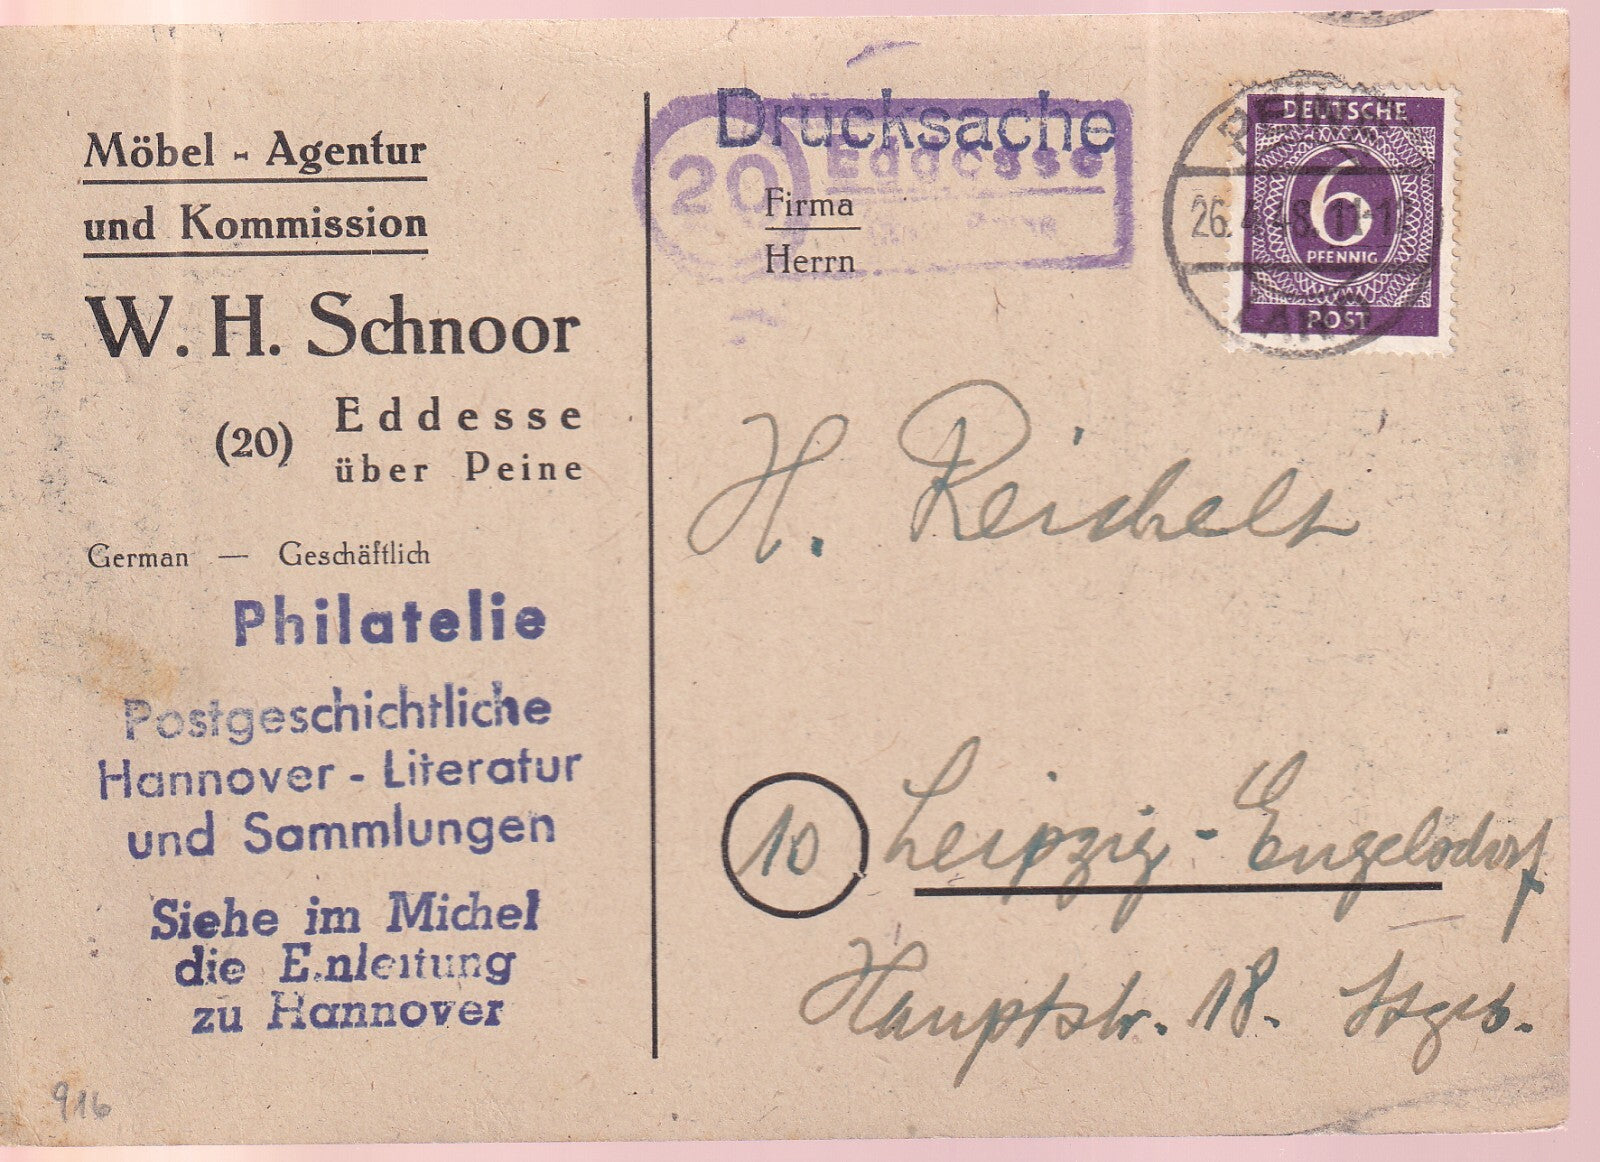 Möbel - Agentur
und Kommission
W. H. Schnoor
(20) Eddesse
über Peine
German — Geschäftlich
Philatelie
Postgeschichtliche
Hannover - Literatur
und Sammlungen
Siehe im Michel
die Enleitung
zu Hannover
916
Drucksache
20 Eddesse
Firma
Herrn
DEUTSCHE
6
PFENNIG
POST
26.4.48.11-12
H. Reichelt
10 Leipzig - Engelsdorf
Hauptstr. 18.